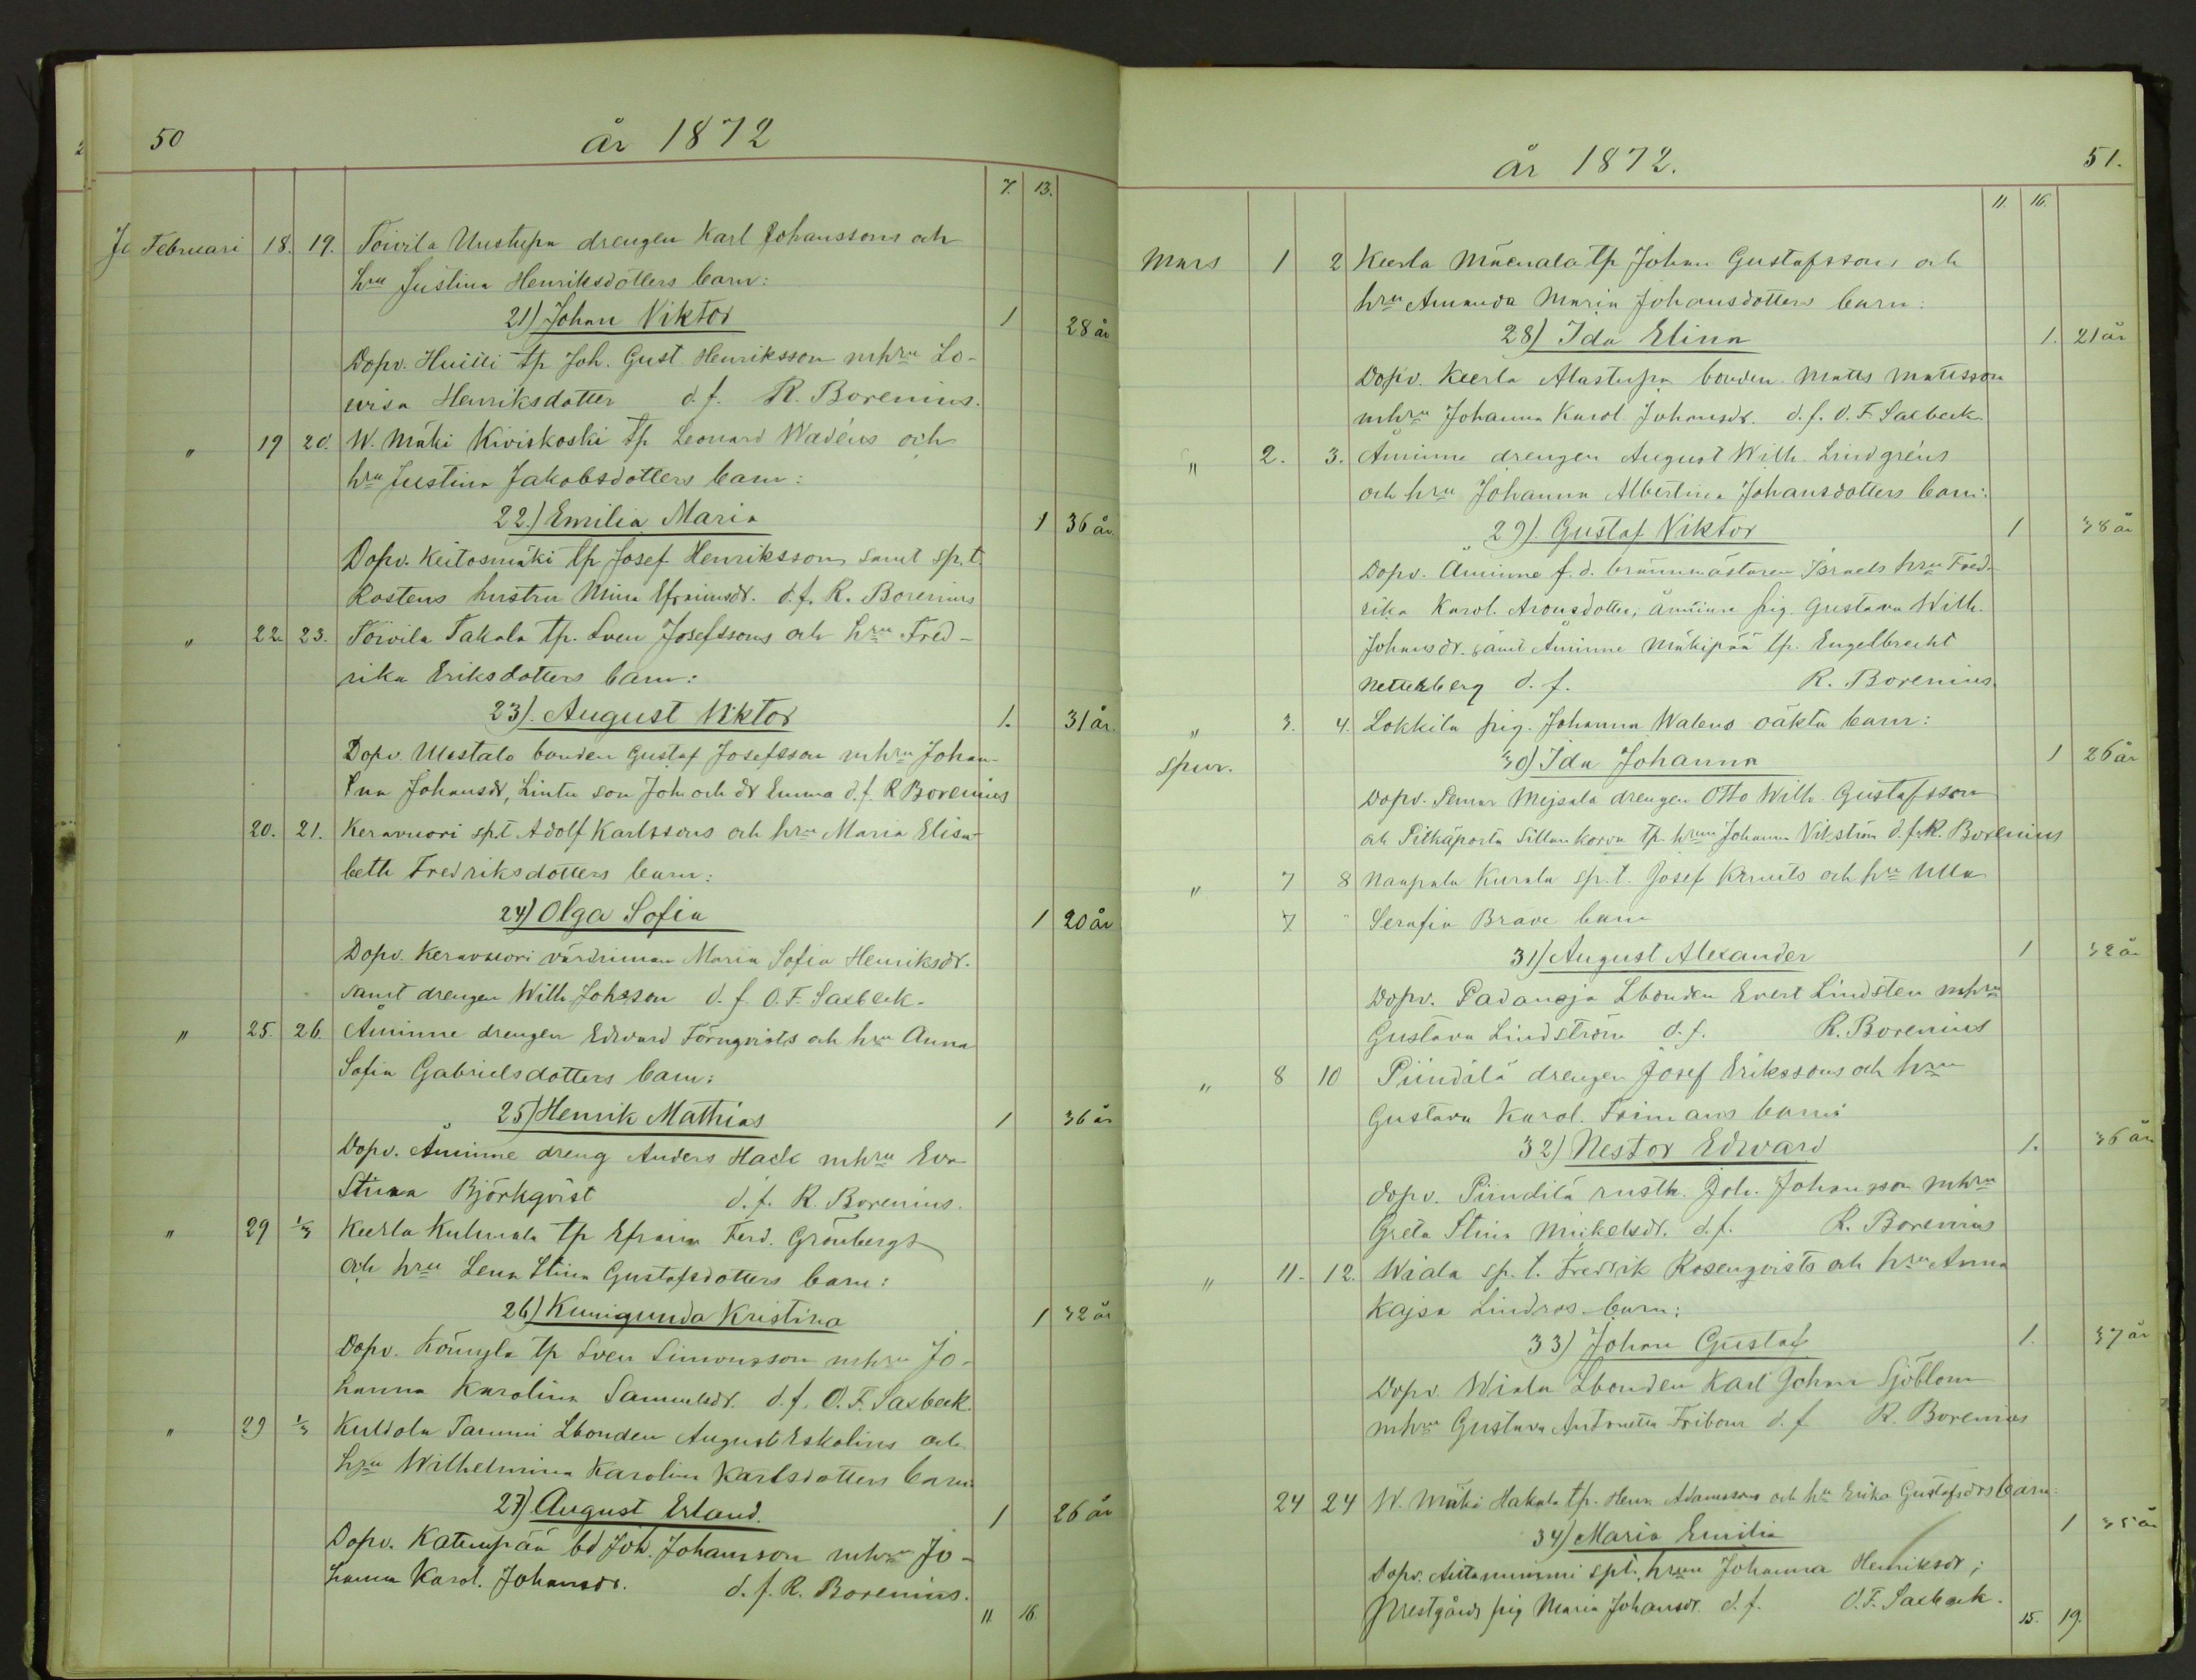 50
år 1872
7. 13.
Februari 18. 19. Toivila Uustupa drengen Karl Johanssons och
hru Justina Henriksdotters barn:
21) Johan Viktor 1 28 år
Dopv. Huilli tp Joh. Gust Henriksson mhru Lo-
wisa Henriksdotter d. f. R. Borenius.
" 19 20. W. Mäki Kiviskoski tp Leonard Wadéns och
hru Justina Jakobsdotters barn:
22.) Emilia Maria 1 36 år.
Dopv. Keitosmäki tp Josef Henriksson samt sp. t.
Rostens hustru Mina Efraimsdr. d. f. R. Borenius
" 22. 23. Toivila Takala tp. Sven Josefssons och hru Fred-
rika Eriksdotters barn:
23). August Viktor 1. 31 år.
Dopv. Uustalo bonden Gustaf Josefsson mhru Johan-
Johansdr, Lintu son Joh och dr Emma d. f. R Borenius
20. 21. Keravuori sp.t Adolf Karlssons och hru Maria Elisa-
beth Fredriksdotters barn:
24) Olga Sofia 1 20 år
Dopv. Keravuori värdinnan Maria Sofia Henriksdr.
samt drengen Wilh Johsson d. f. O. F. Saxbeck.
" 25. 26. Åminne drengen Edward Törnqvists och hru Anna
Sofia Gabrielsdotters barn:
25) Henrik Mathias 1 36 år
Dopv. Åminne dreng Anders Hack mhru Eva
Stina Björkqvist d. f. R. Borenius.
" 29 1/3 Keerla Kulmala tp Efraim Ferd. Grönbergs
och hru Lena Stina Gustafsdotters barn:
26) Kunigunda Kristina 1 32 år
Dopv. Könnylä tp Sven Simonsson mhru Jo-
hanna Karolina Samuelsdr. d. f. O. F. Saxbeck.
" 29 1/3 Kuldola Tammi Lbonden August Eskolins och
hru Wilhelmina Karolina Karlsdotters barn:
27) August Erland. 1 26 år
Dopv. Katumpää bd Joh. Johansson mhru Jo-
hanna Karol. Johansdr. d. f. R. Borenius.
11 16.
51.
år 1872.
11. 16.
Mars 1 2 Keerla Mäenala tp Johan Gustafssons och
hru Amanda Maria Johansdotters barn:
28) Ida Elina 1. 21 år
Dopv. Keerla Alastupa bonden Matts Mattsson
mhru Johanna Karol. Johansdr. d. f. O. F. Saxbeck.
" 2. 3. Åminne drengen August Wilh. Lindgréns
och hru Johanna Albertina Johansdotters barn:
29). Gustaf Viktor 1 38 år
Dopv. Åminne f. d. brännmästaren Israels hru Fred-
rika Karol. Aronsdotter, Åminne pig. Gustava Wilh.
Johansdr. samt Åminne Mäkipää tp. Engelbrecht
Netterberg d. f. R. Borenius.
" 3. 4. Lokkila pig. Johanna Walens oäkta barn:
spur. 30) Ida Johanna 1 26 år
Dopv. Pernar Mejsala drengen Otto Wilh. Gustafsson
och Pitkäporta Sillankorva tp. hrun Johanna Vikström d. f. R. Borenius
" 7 8 Naapala Kurala sp. t. Josef Kruuts och hru Ulla
7 " Serafia Brave barn
31) August Alexander 1 32 år
Dopv. Padanoja Lbonden Evert Lindsten mhru
Gustava Lindström d. f. R. Borenius
" 8 10 Piindilä drengen Josef Erikssons och hru
Gustava Karol. Frimans barn
32) Nestor Edward 1. 36 år
dopv. Piindilä rusth. Joh. Johansson mhru
Greta Stina Mickelsdr. d. f. R. Borenius
" 11. 12. Wiala sp. t. Fredrik Rosenqvists och hru Anna
Kajsa Lindros barn:
33) Johan Gustaf 1. 37 år
Dopv. Wiala Lbonden Karl Johan Sjöblom
mhru Gustava Antonetta Fribom d. f R. Borenius
24 24 W. Mäki Hakala tp. Henr. Adamssons och hru Erika Gustafsdrs barn:
34) Maria Emilia 1 35 år
Dopv. Aittanummi spt. hrun Johanna Henriksdr;
Prestgårds pig Maria Johansdr. d. f. O. F. Saxbeck.
15. 19.